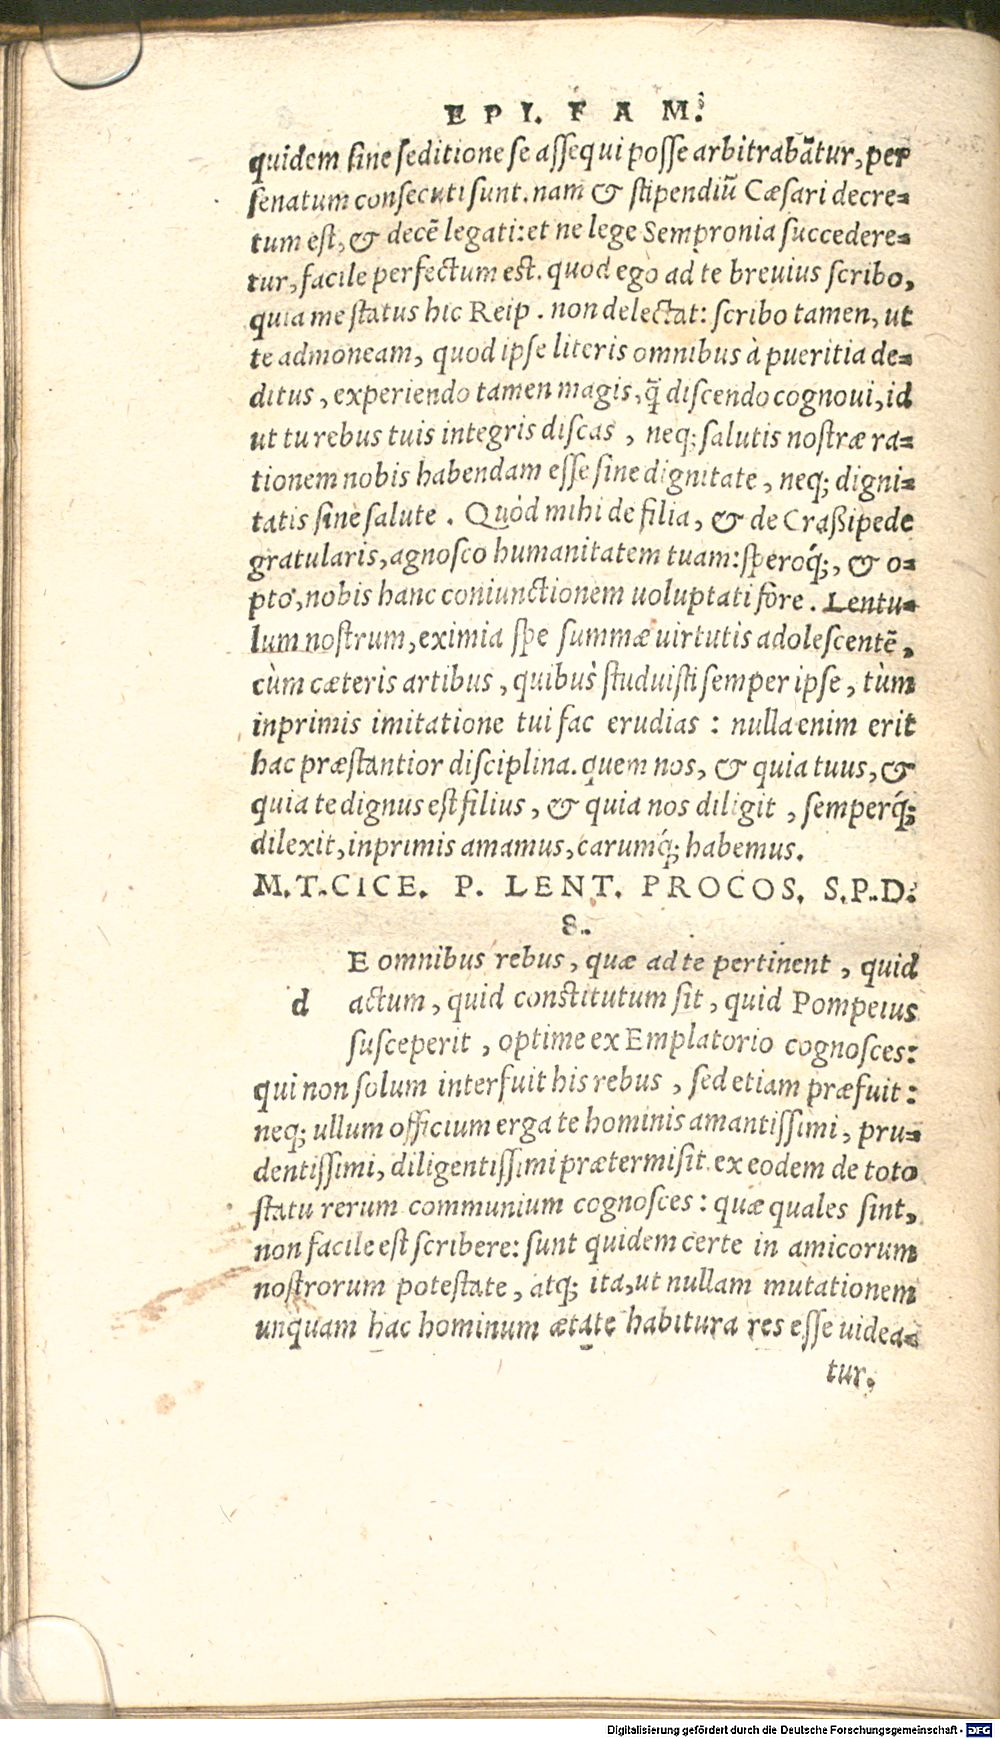 EPI. FAM.
quidem sine seditione se assequi posse arbitrabãtur, per
senatum consecuti sunt. nam & stipendiũ Cæsari decre-
tum est, & decẽ legati: et ne lege Sempronia succedere-
tur, facile perfectum est. quod ego ad te breuius scribo,
quia me status hic Reip. non delectat: scribo tamen, ut
te admoneam, quod ipse literis omnibus à pueritia de-
ditus, experiendo tamen magis, q̃ discendo cognoui, id
ut tu rebus tuis integris discas, neq; salutis nostræ ra-
tionem nobis habendam esse sine dignitate, neq; digni-
tatis sine salute. Quòd mihi de filia, & de Craßipede
gratularis, agnosco humanitatem tuam: speroq́;, & o-
pto, nobis hanc coniunctionem uoluptati fore. Lentu-
lum nostrum, eximia spe summæ uirtutis adolescentẽ,
cùm cæteris artibus, quibus studuisti semper ipse, tùm
inprimis imitatione tui fac erudias: nulla enim erit
hac præstantior disciplina. quem nos, & quia tuus, &
quia te dignus est filius, & quia nos diligit, semperq́;
dilexit, inprimis amamus, carumq́; habemus.
M.T.CICE. P. LENT. PROCOS. S.P.D.
8.
E omnibus rebus, quæ ad te pertinent, quid
d actum, quid constitutum sit, quid Pompeius
susceperit, optime ex Emplatorio cognosces:
qui non solum interfuit his rebus, sed etiam præfuit:
neq; ullum officium erga te hominis amantissimi, pru-
dentissimi, diligentissimi prætermisit. ex eodem de toto
statu rerum communium cognosces: quæ quales sint,
non facile est scribere: sunt quidem certe in amicorum
nostrorum potestate, atq; ita, ut nullam mutationem
unquam hac hominum ætate habitura res esse uidea-
tur.
Digitalisierung gefördert durch die Deutsche Forschungsgemeinschaft - DFG